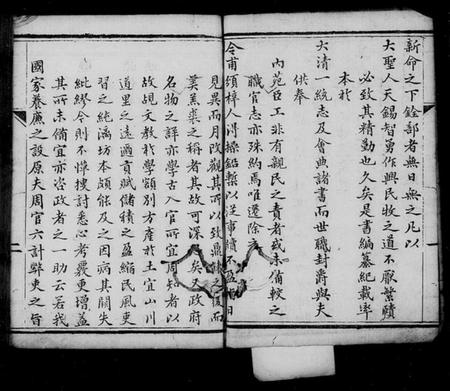 新命之下銓部者無日無之凡以
大聖人天錫智勇作興民牧之道不厭繁賾
必致其精勤也久矣是書編纂紀載率
本於
大清一統志及會典諸書而世職封爵與夫
供奉
內苑臣工非有親民之責者或未備較之
職官志亦殊約焉唯還除
令甫頒梓人得操鉛槧以從事
見異而月改觀其所以致
名物之詳亦學古入官所宜周知者以
故現文教於學額別方產於土宜山川
道里之遠邇貢賦儲積之盈縮民風吏
習之純漓坊本頗能及之因病其闕失
紕繆今則不憚搜討悉心考覈更增益
其所未備宜亦咨政者之一助云若我
國家養廉之設原夫周官六計弊吏之旨